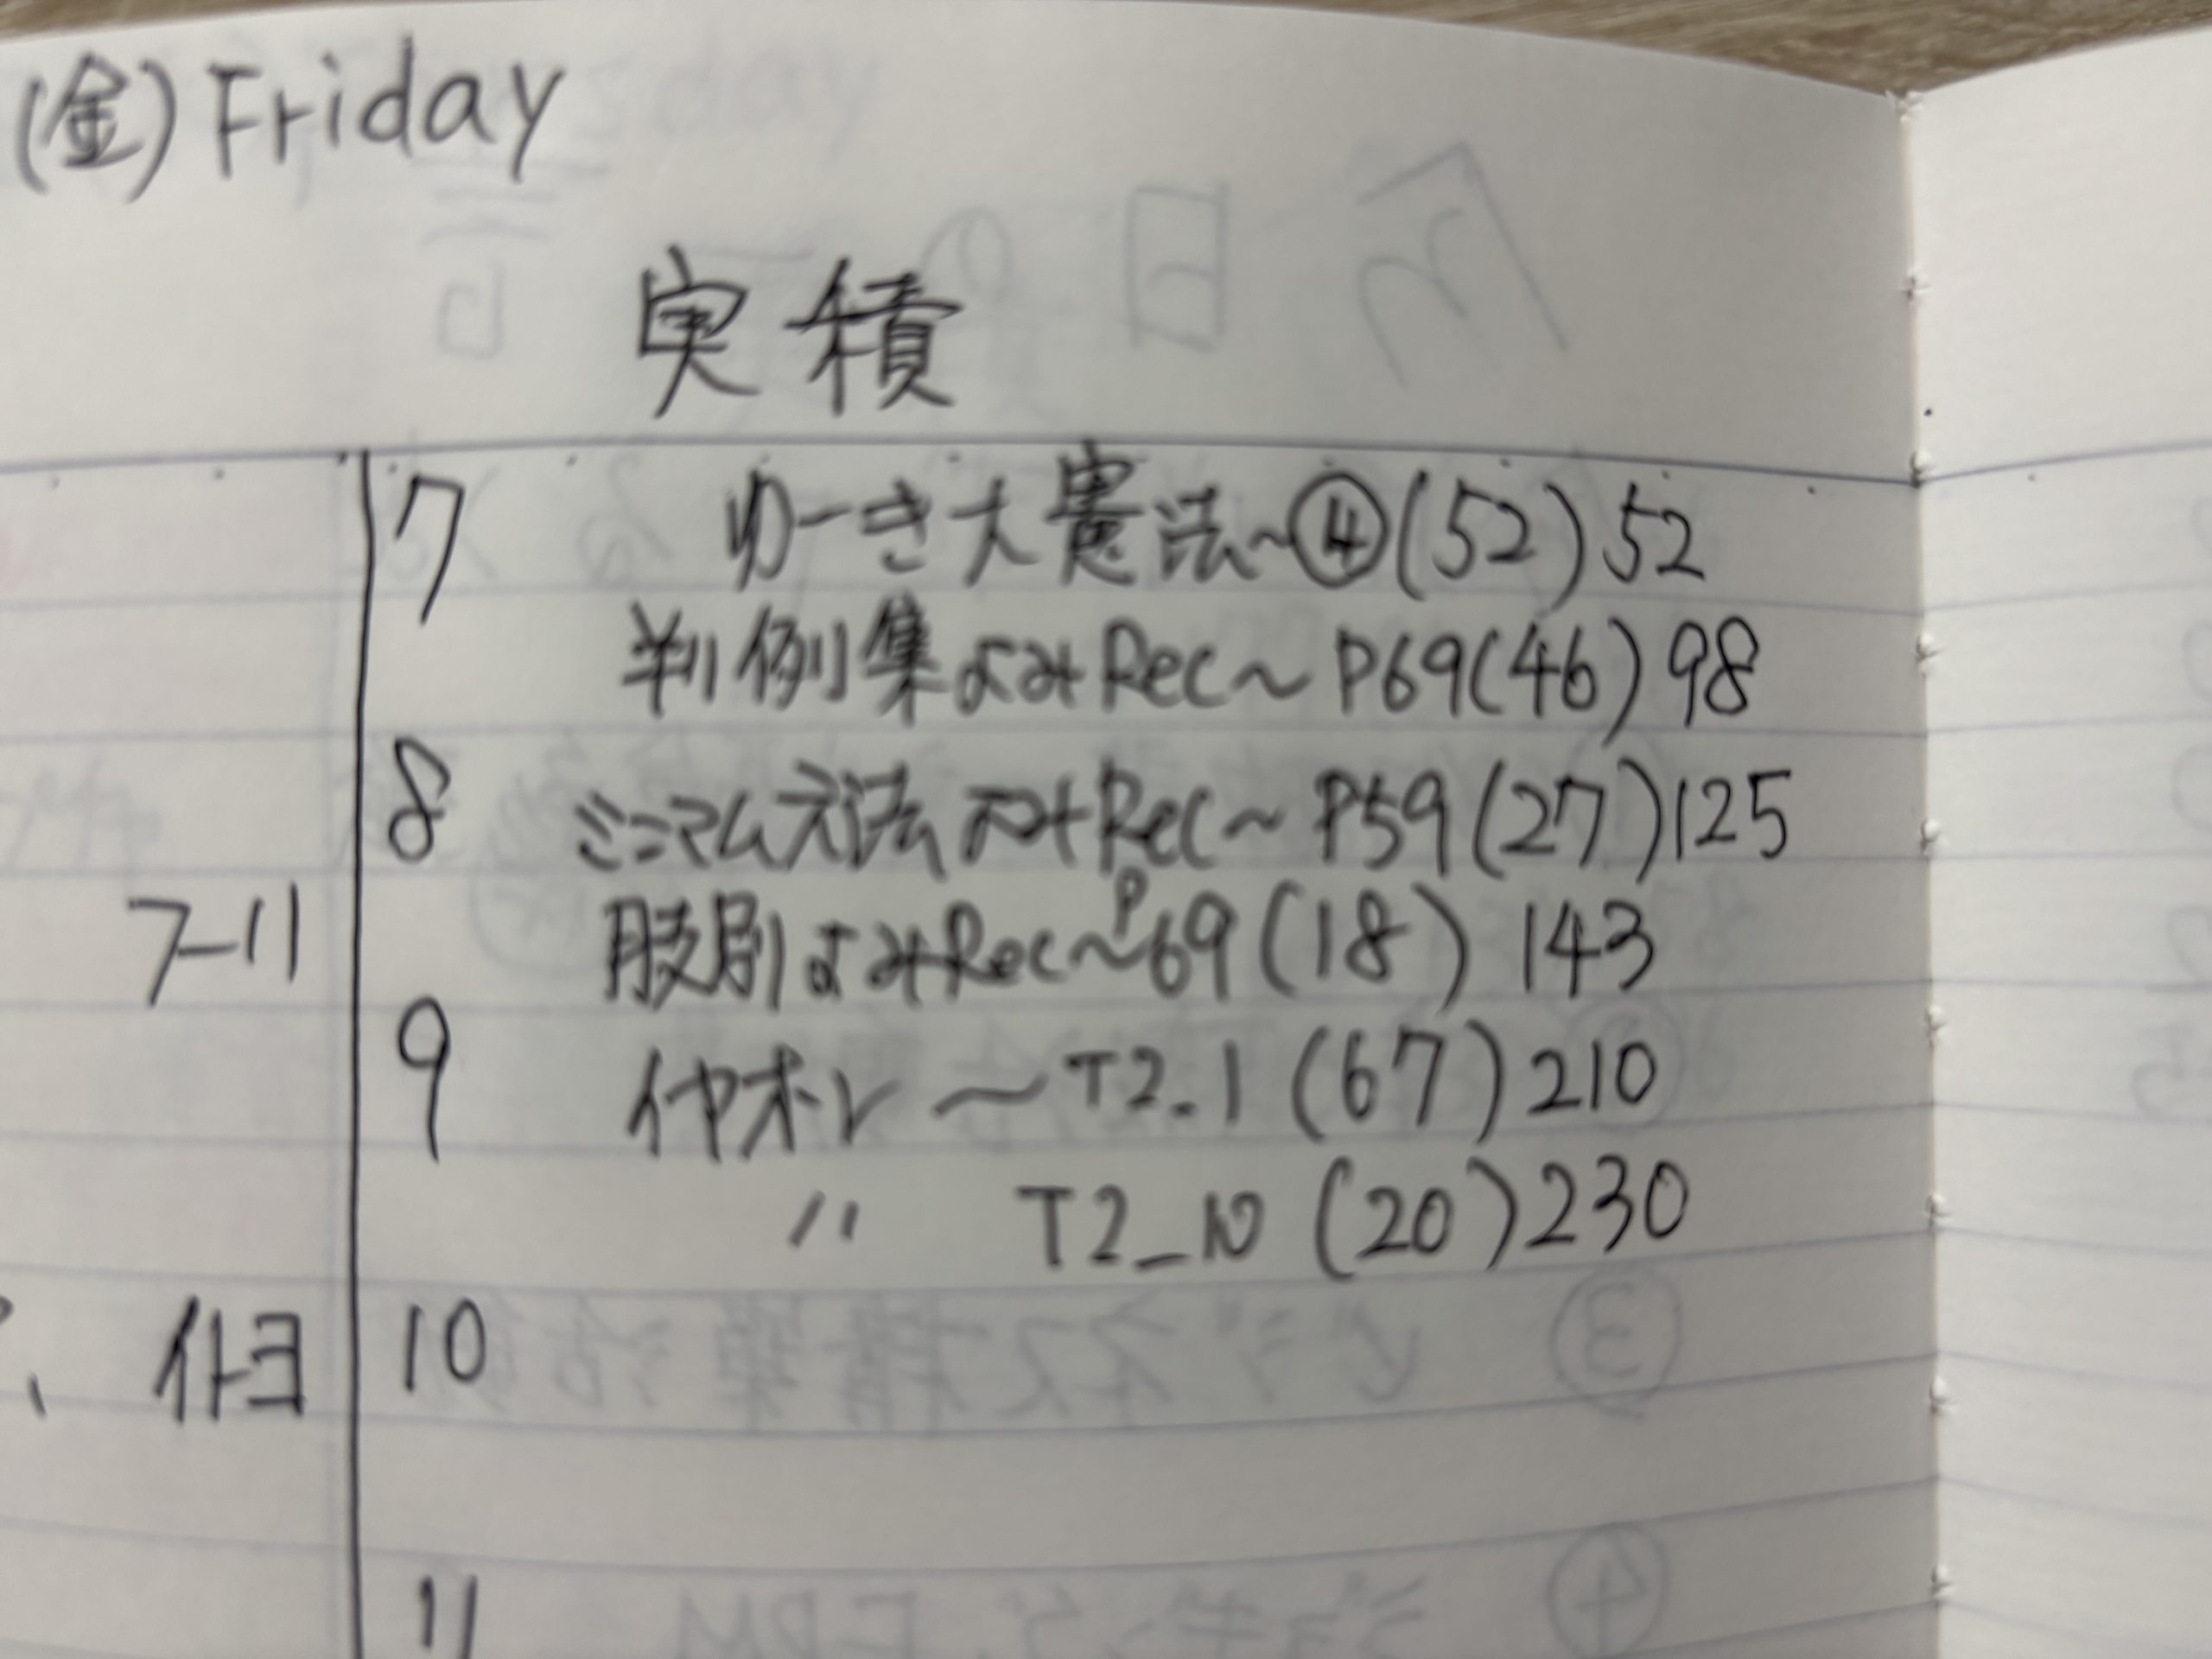 (金) Friday
実積
7 ゆーき大憲法~④(52) 52
判例集よみRec~P69(46) 98
8 ミニマム 法よみRec~P59(27) 125
7-11 肢別よみRec~P69(18) 143
9 イヤオレ~T2_1(67) 210
〃 T2_10(20) 230
10
11